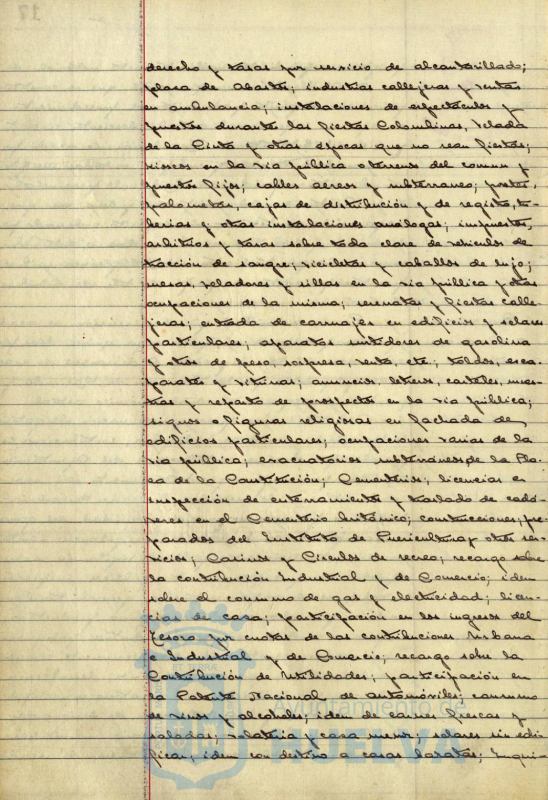 17
derecho y tasas por servicio de alcantarillado;
plaza de Abastos; industrias callejeras y ventas
en ambulancia; instalaciones de espectáculos y
puestos durante las fiestas Colombinas, Velada
de la Cinta y otras épocas que no sean fiestas;
kioscos en la via pública o terrenos del comun y
puestos fijos; cables aereos y subterraneo; postes,
palometas, cajas de distribución y de registro, tu-
berias y otras instalaciones análogas; impuestos,
arbitrios y tasas sobre toda clase de vehiculos de
tracción de sangre; bicicletas y caballos de lujo;
mesas, veladores y sillas en la via pública y otras
ocupaciones de la misma; serenatas y fiestas calle-
jeras; entrada de carruajes en edificios y solares
particulares; aparatos surtidores de gasolina
y otros de peso, sorpresa, venta, etc.; toldos, esca-
parates y vitrinas; anuncios, letreros, carteles, mues-
tras y reparto de prospectos en la via pública;
signos o figuras religiosas en fachada de
edificios particulares; ocupaciones varias de la
via pública; evacuatorios subterraneos de la Pla-
za de la Constitución; Cementerios; licencias e
inspección de enterramientos y traslado de cadá-
veres en el Cementerio británico; construcciones; pre-
parados del Instituto de Puericultura y otros ser-
vicios; Casinos y Circulos de recreo; recargo sobre
la contribución Industrial y de Comercio; idem
sobre el consumo de gas y electricidad; licen-
cias de caza; participación en los ingresos del
Tesoro por cuotas de las contribuciones Urbana
e Industrial y de Comercio; recargo sobre la
Contribución de Utilidades; participación en
la Patente Nacional de automóviles; consumo
de vinos y alcoholes; idem de carnes frescas y
saladas; volateria y caza menor; solares sin edi-
ficar; idem con destino a casas baratas; Inqui-
Ayuntamiento de
HUELVA